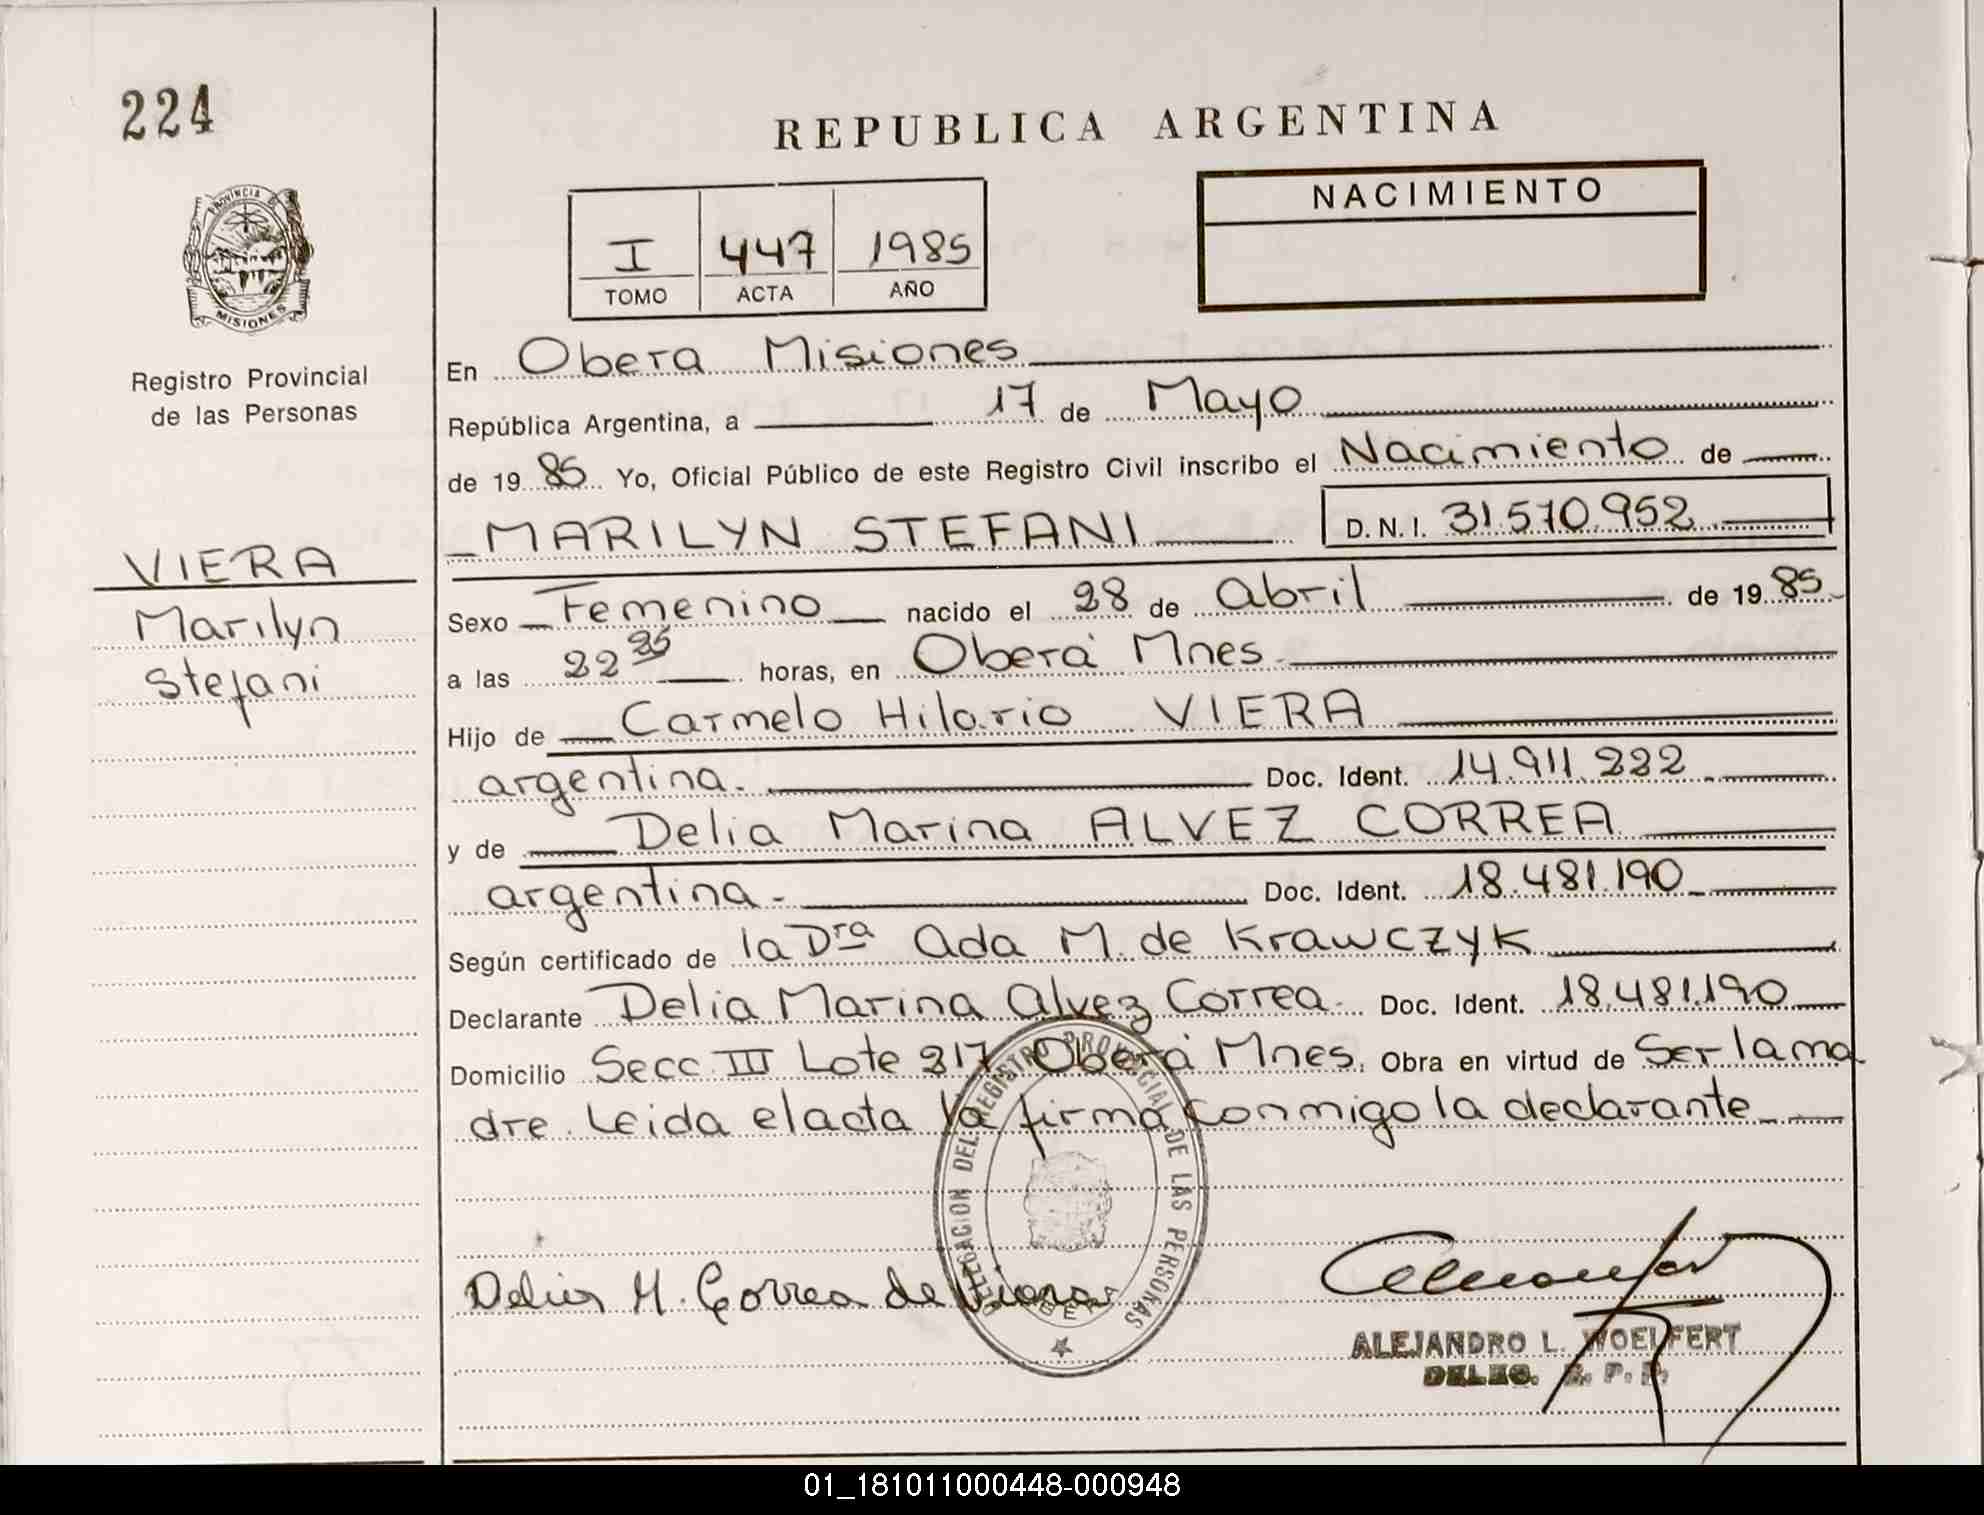 224
REPUBLICA ARGENTINA
PROVINCIA DE
MISIONES
Registro Provincial
de las Personas
I 447 1985
TOMO ACTA AÑO
NACIMIENTO
En Obera Misiones
República Argentina, a 17 de Mayo
de 19 85 Yo, Oficial Público de este Registro Civil inscribo el Nacimiento de
MARILYN STEFANI D.N.I. 31.510.952
VIERA
Marilyn
Stefani
Sexo Femenino nacido el 28 de Abril de 19 85
a las 22 25 horas, en Oberá Mnes.
Hijo de Carmelo Hilario VIERA
argentina. Doc. Ident. 14.911.222
y de Delia Marina ALVEZ CORREA
argentina. Doc. Ident. 18.481.190
Según certificado de la Dra Ada M. de Krawczyk
Declarante Delia Marina Alvez Correa. Doc. Ident. 18.481.190
Domicilio Secc III Lote 217 Oberá Mnes. Obra en virtud de Ser la ma
dre. Leida el acta la firma conmigo la declarante
DELEGACION DEL REGISTRO PROVINCIAL DE LAS PERSONAS
OBERA
Delia M. Correa de Viera
ALEJANDRO L. WOELFERT
DELEG. R. P. P.
01_181011000448-000948